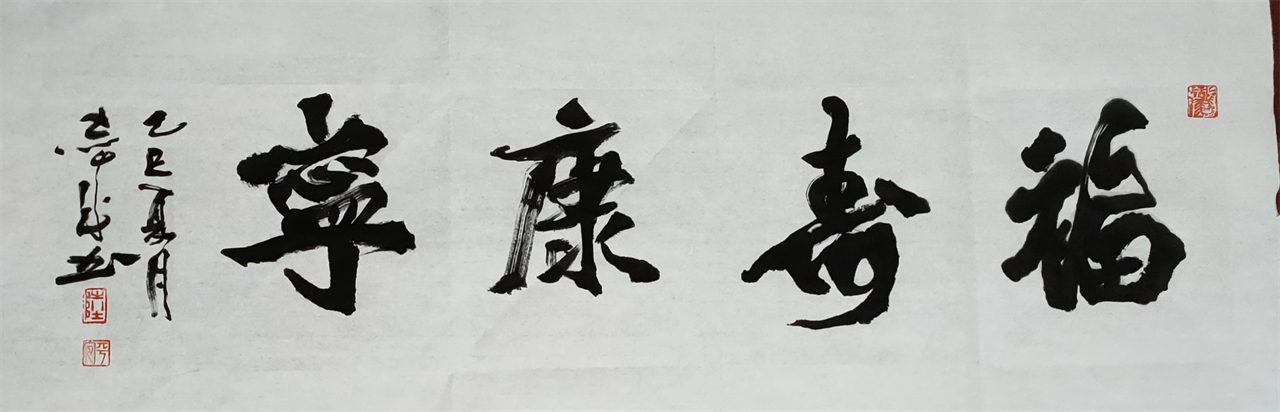 福壽康寧
乙巳夏月